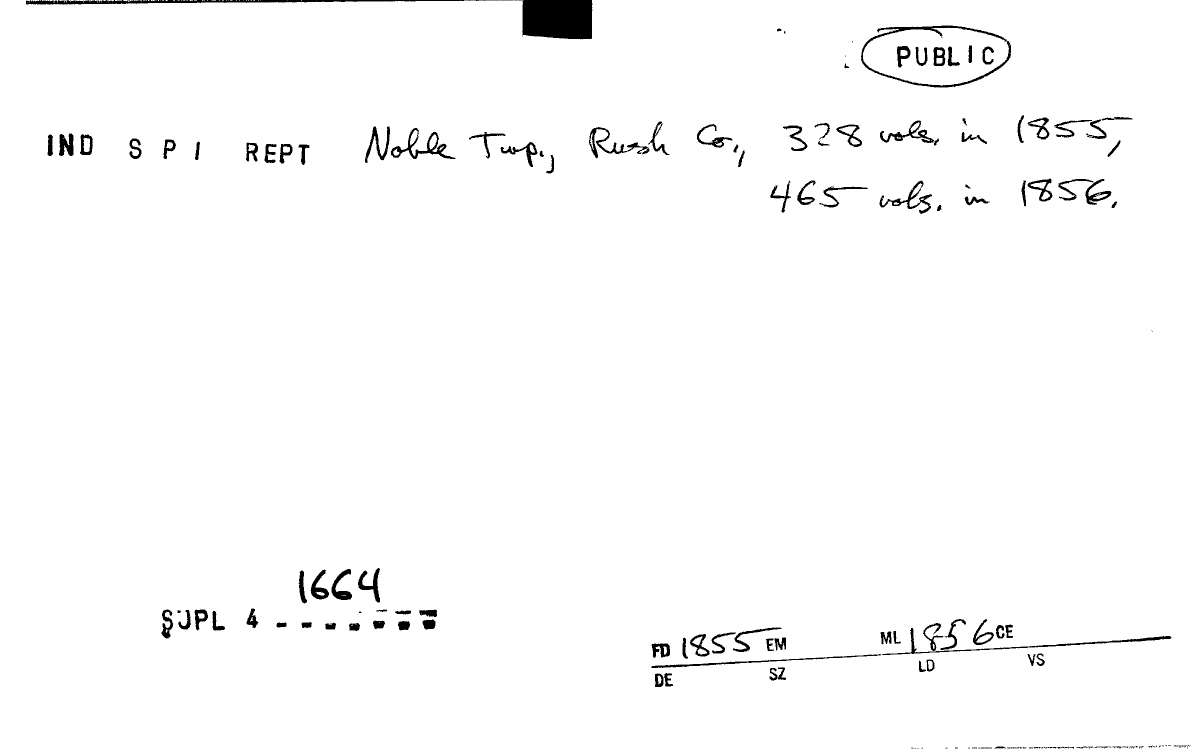 PUBLIC
IND S P I REPT Noble Twp., Rush Co., 328 vols. in 1855,
465 vols. in 1856.
1664
SUPL 4 - - - - - - -
FD 1855 EM ML 1856 CE
DE SZ LD VS